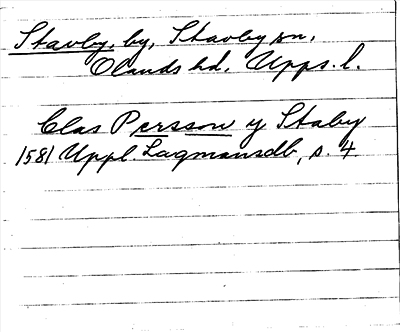 Stavby, by, Stavby sn,
Olands hd. Upps. l.
Clas Persson y Staby
1581 Uppl. Lagmansdb, s. 4.